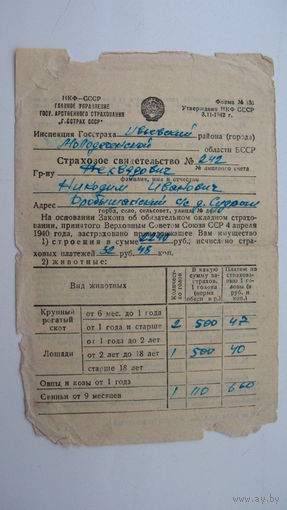 НКФ—СССР
ГЛАВНОЕ УПРАВЛЕНИЕ
ГОСУДАРСТВЕННОГО СТРАХОВАНИЯ
"ГОССТРАХ СССР"
Форма №
Утверждено НКФ СССР
3.11-1942 г.
Инспекция Госстраха Ивьевский района (города)
Молодечненской области БССР
Страховое свидетельство № 242
№ лицевого счета
Гр-ну
фамилия, имя и отчество
Никодим Иванович
Адрес с/с д.
город, село, сельсовет, улица, № дома
На основании Закона об обязательном окладном страхо-
вании, принятого Верховным Советом Союза ССР 4 апреля
1940 года, застраховано принадлежащее Вам имущество:
1) строения в сумме 2240 руб.; исчислено стра-
ховых платежей 32 руб. 48 коп.
2) животные:
Вид животных
Количество голов
В какую сумму за-
страхов.
1 голова
(норма
обесп. в р.)
Платеж по
страхованию
1 головы
(в руб.
и коп.)
Крупный рогатый скот
от 6 мес. до 1 года
от 1 года и старше 2 500 47
Лошади
от 1 года до 2 лет
от 2 лет до 18 лет 1 500 40
старше 18 лет
Овцы и козы от 1 года
Свиньи от 9 месяцев 1 110 6 60
ay.by